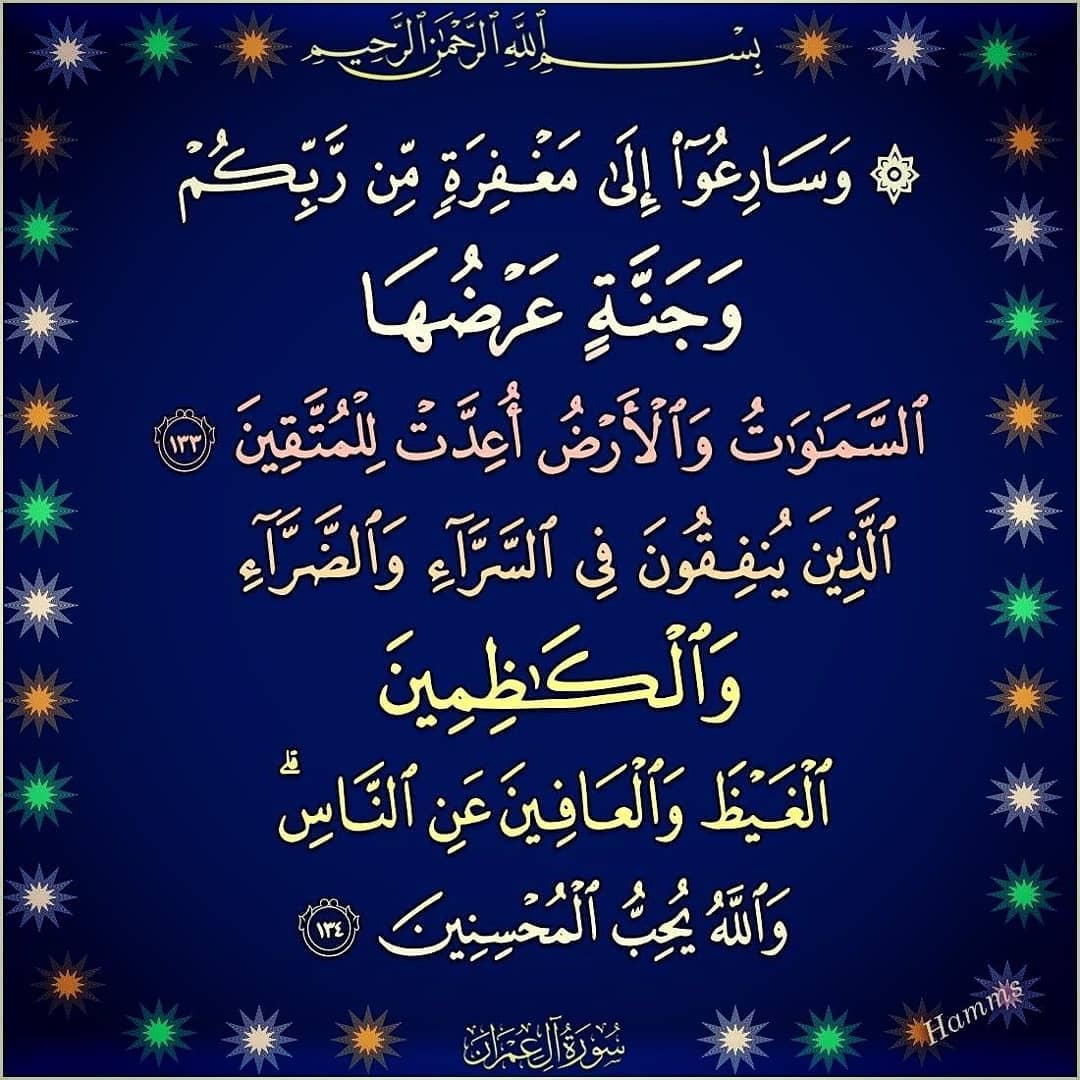 بِسْمِ ٱللَّهِ ٱلرَّحْمَٰنِ ٱلرَّحِيمِ
۞ وَسَارِعُوٓا۟ إِلَىٰ مَغْفِرَةٍ مِّن رَّبِّكُمْ
وَجَنَّةٍ عَرْضُهَا
ٱلسَّمَٰوَٰتُ وَٱلْأَرْضُ أُعِدَّتْ لِلْمُتَّقِينَ ١٣٣
ٱلَّذِينَ يُنفِقُونَ فِى ٱلسَّرَّآءِ وَٱلضَّرَّآءِ
وَٱلْكَٰظِمِينَ
ٱلْغَيْظَ وَٱلْعَافِينَ عَنِ ٱلنَّاسِ ۗ
وَٱللَّهُ يُحِبُّ ٱلْمُحْسِنِينَ ١٣٤
سُورَةُ آلِ عِمْرَان
Hamms